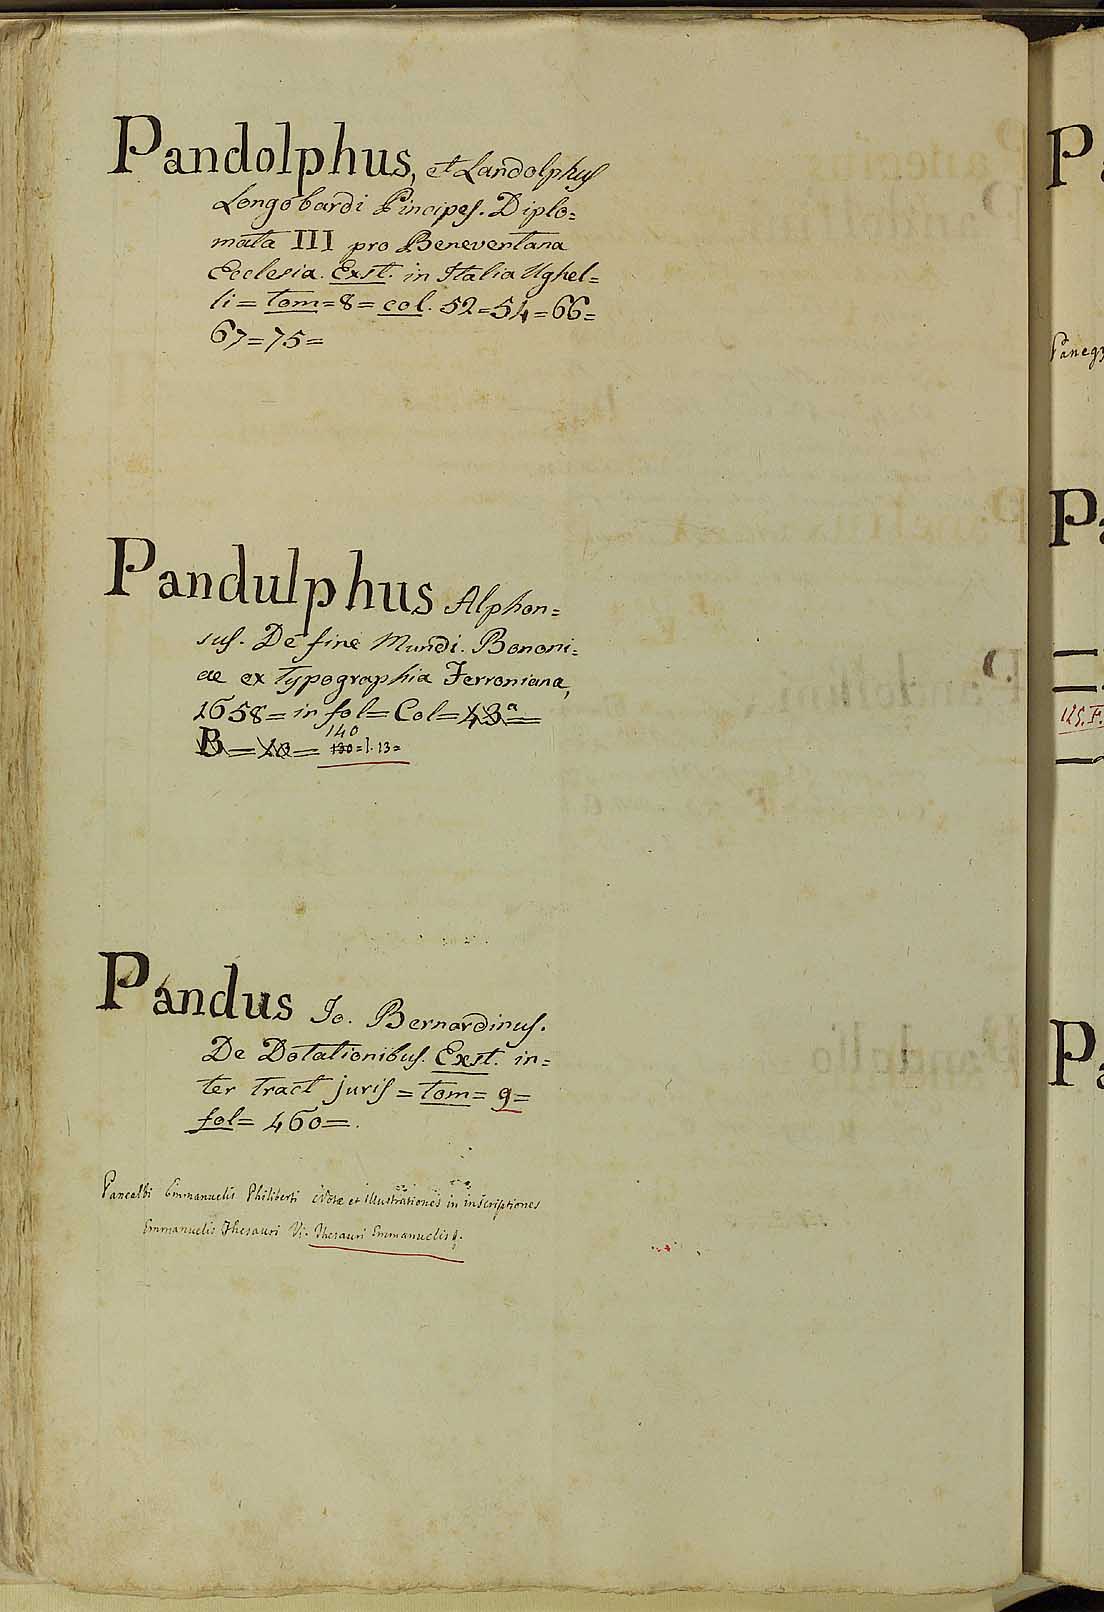 Pandolphus, et Landolphus
Longobardi Pincipes. Diplo=
mata III pro Beneventana
Ecclesia. Exst. in Italia Ughel=
li = tom = 8 = col. 52 = 54 = 66 =
67 = 75 =
Pandulphus Alphon=
sus. De fine Mundi. Bononi=
ae ex Typographia Ferroniana,
1658 = in fol = Col = 43ª =
140
B = 130 = l. 13 =
Pandus Jo. Bernardinus.
De Dotationibus. Exst. in=
ter tract juris = tom = 9 =
fol = 460 =.
Pancalbi Emmanuelis Philiberti Notæ et illustrationes in inscriptiones
Emmanuelis Thesauri Vi. Thesauri Emmanuelis
P
Panegy
P
125. F.
P